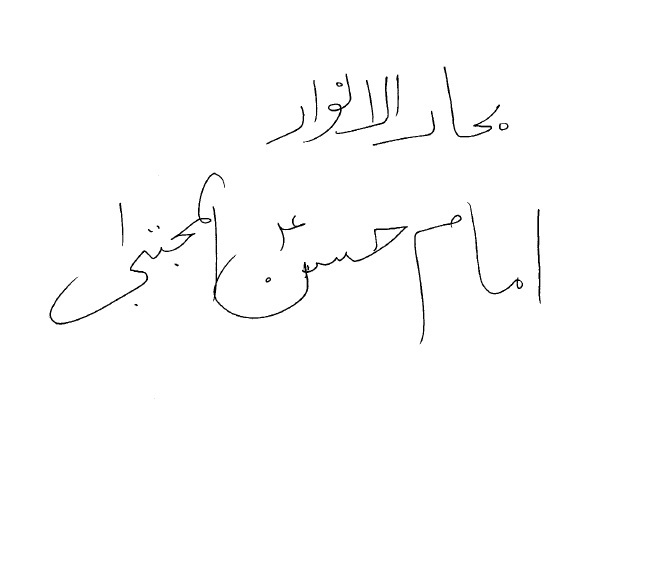 بحار الانوار
امام حسن ؑ المجتبیٰ